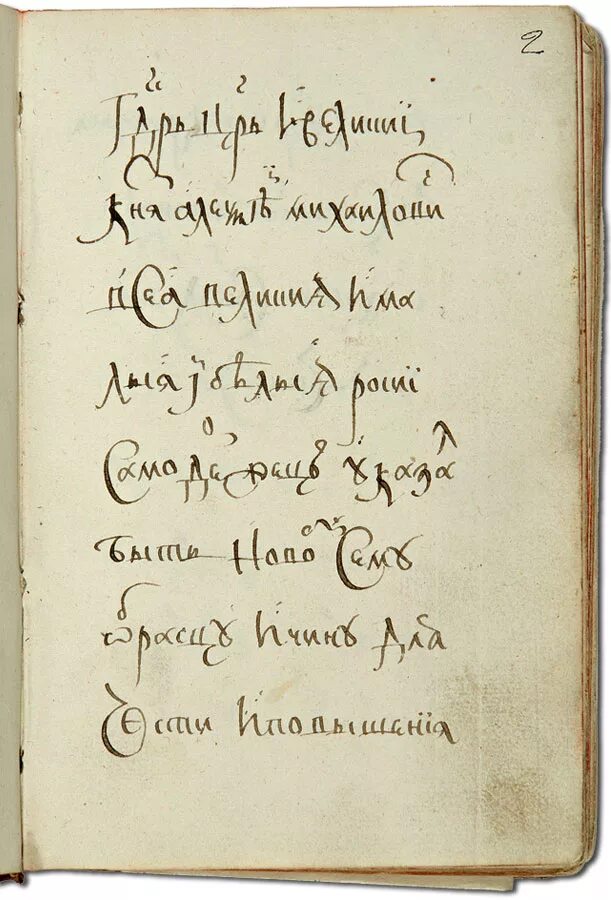 2
Гдрь црь и великиї
кнѧ алеѯѣй михаиловичь
всеа великиѧ и ма
лыѧ и бѣлыѧ росиї
самодержецъ указал
быть новому сему
ѡбрасцу и чину длѧ
чести и повышениѧ